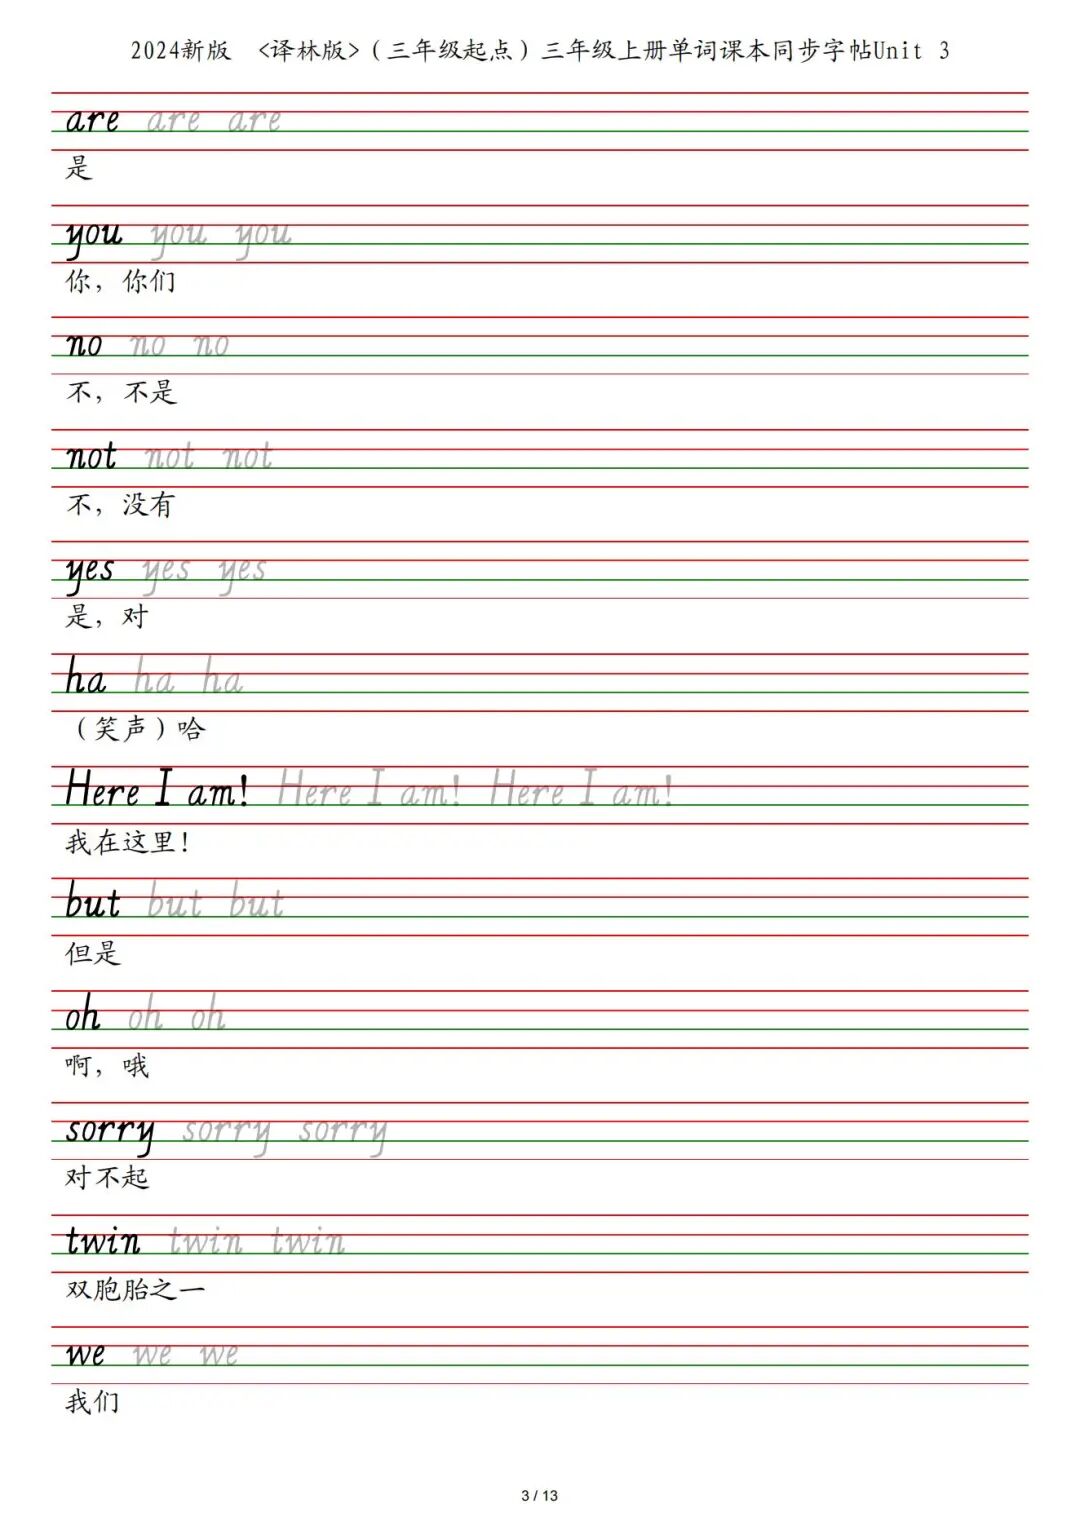 2024新版 <译林版>（三年级起点）三年级上册单词课本同步字帖Unit 3
are are are
是
you you you
你，你们
no no no
不，不是
not not not
不，没有
yes yes yes
是，对
ha ha ha
（笑声）哈
Here I am! Here I am! Here I am!
我在这里！
but but but
但是
oh oh oh
啊，哦
sorry sorry sorry
对不起
twin twin twin
双胞胎之一
we we we
我们
3 / 13